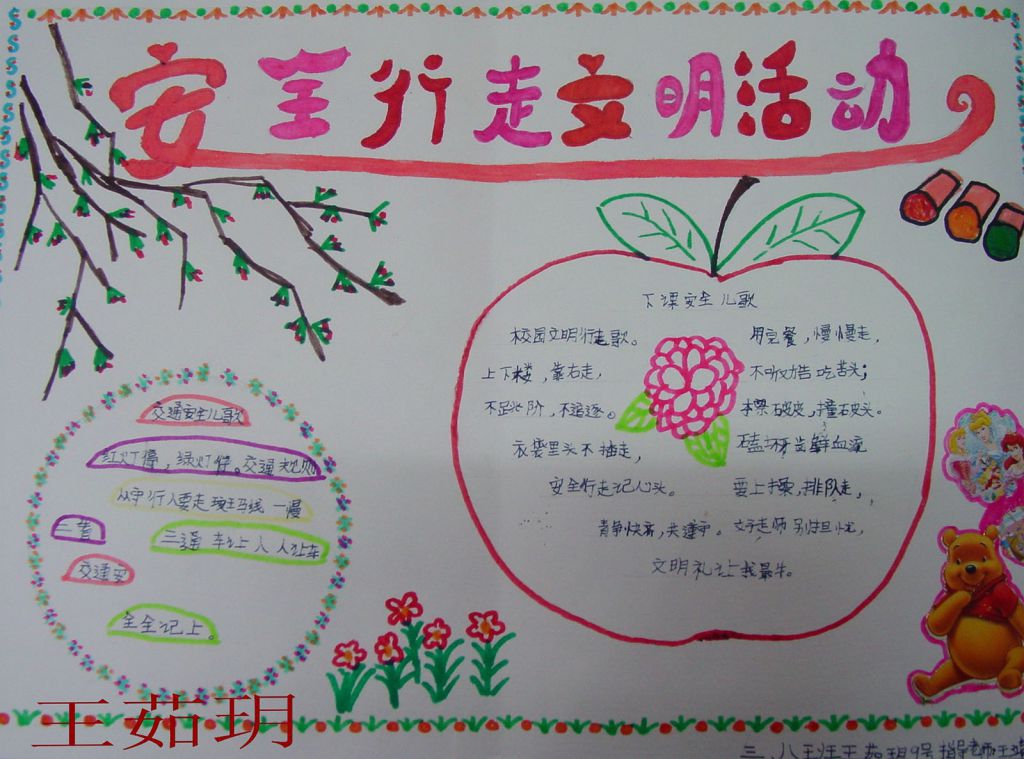 安全行走文明活动
下课安全儿歌
校园文明行走歌。
上下楼,靠右走,
不跳阶,不追逐。
衣袋里头不插走,
安全行走记心头。
用完餐,慢慢走,
不听劝告吃苦头;
撞破头。
磕坏牙齿鲜血流
要上操,排队走,
静快齐,
文明礼让我最牛。
交通安全儿歌
红灯停,绿灯停。交通规则
行人要走斑马线 一慢
二看
三通 车让人 人让车
交通安
全全记上。
王茹玥
三.八王茹玥9号指导老师王